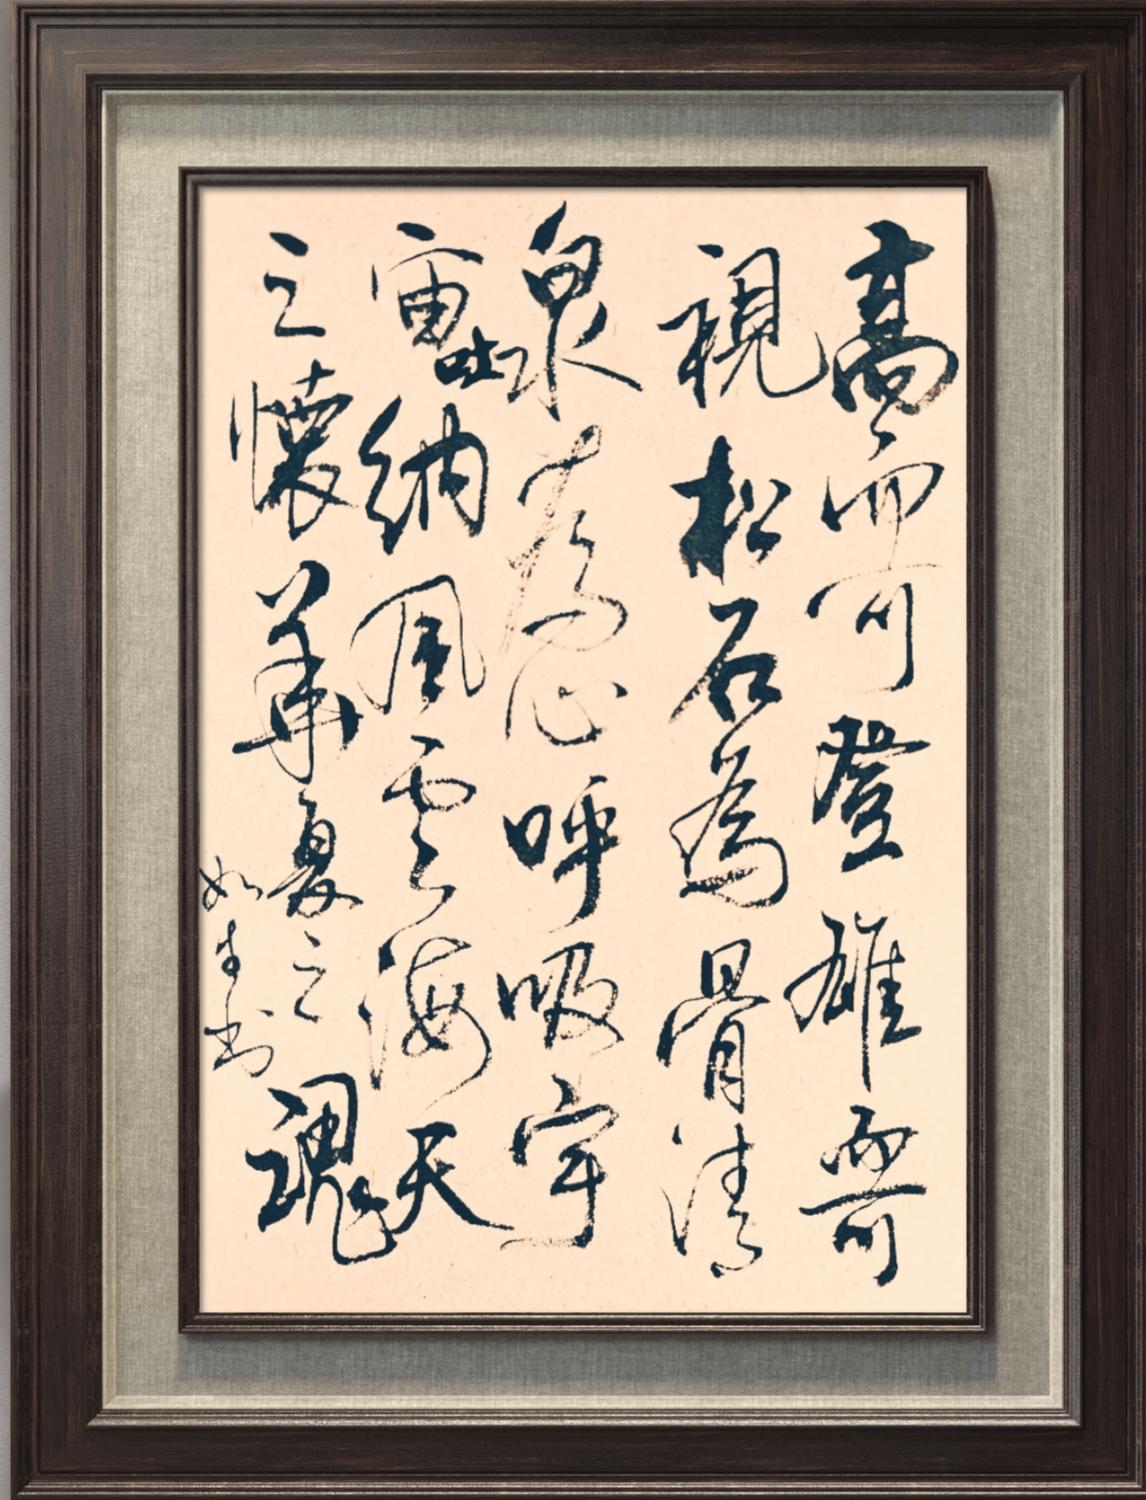 高而可登雄而可
視松石為骨清
泉為心呼吸宇
宙吐納風雲海天
之懷華夏之魂
如生书